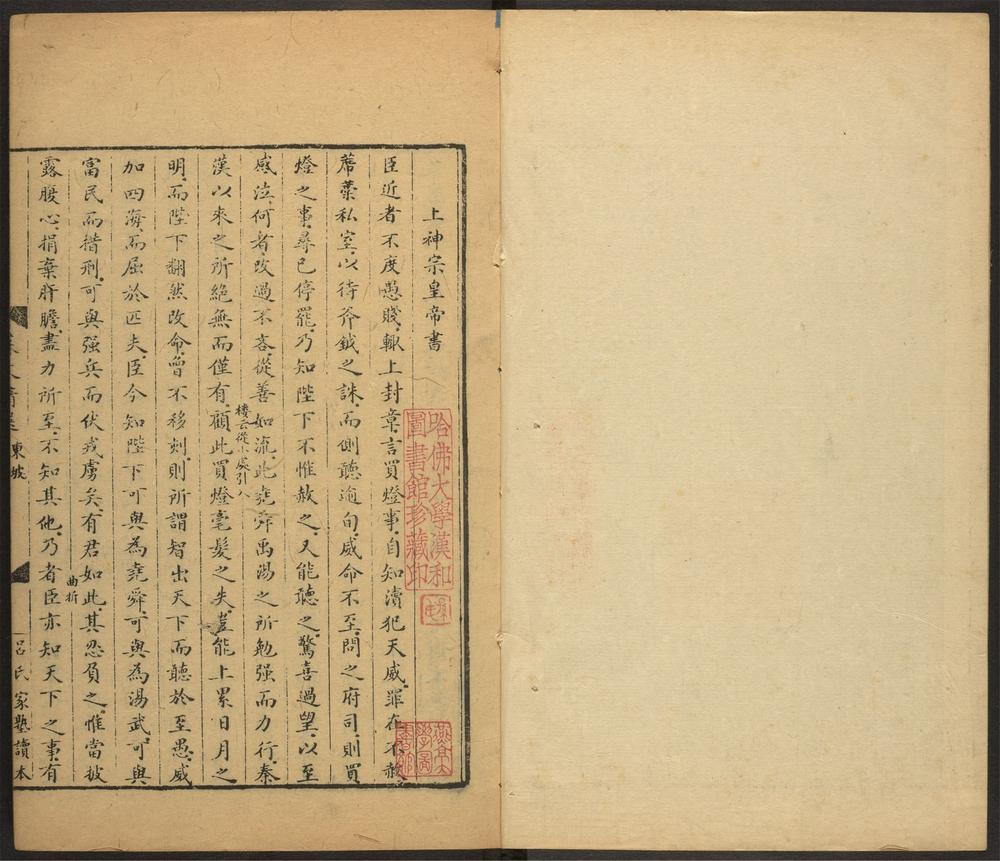 上神宗皇帝書
臣近者不度愚賤輒上封章言買燈事自知瀆犯天威罪在不赦
蓆藁私室以待斧鉞之誅而側聽逾旬威命不至問之府司則買
燈之事尋已停罷乃知陛下不惟赦之又能聽之驚喜過望以至
感泣何者改過不吝從善如流此堯舜禹湯之所勉强而力行秦
樓云從小處引入
漢以來之所絶無而僅有顧此買燈毫髮之失豈能上累日月之
明而陛下翻然改命曾不移刻則所謂智出天下而聽於至愚威
加四海而屈於匹夫臣今知陛下可與為堯舜可與為湯武可與
富民而措刑可與强兵而伏戎虜矣有君如此其忍負之惟當披
曲折
露腹心捐棄肝膽盡力所至不知其他乃者臣亦知天下之事有
東坡
呂氏家塾讀本
哈佛大學漢和
圖書館珍藏印
燕京
學圖